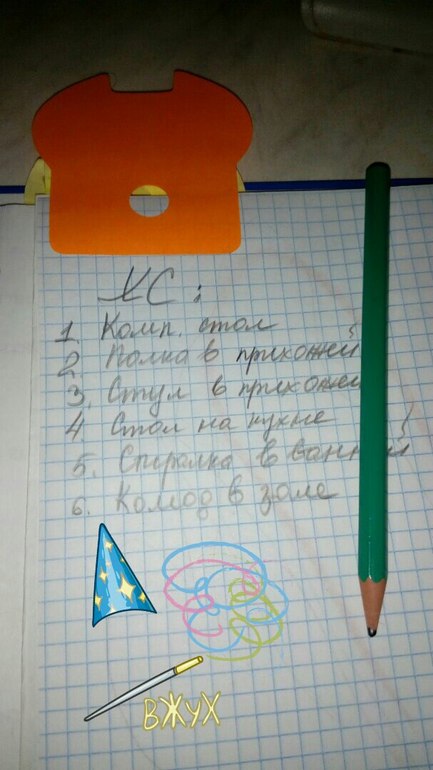 ХС:
1. Комп. стол
2. Полка в прихожей
3. Стул в прихожей
4. Стол на кухне
5. Стиралка в ванной
6. Комод в зале
ВЖУХ